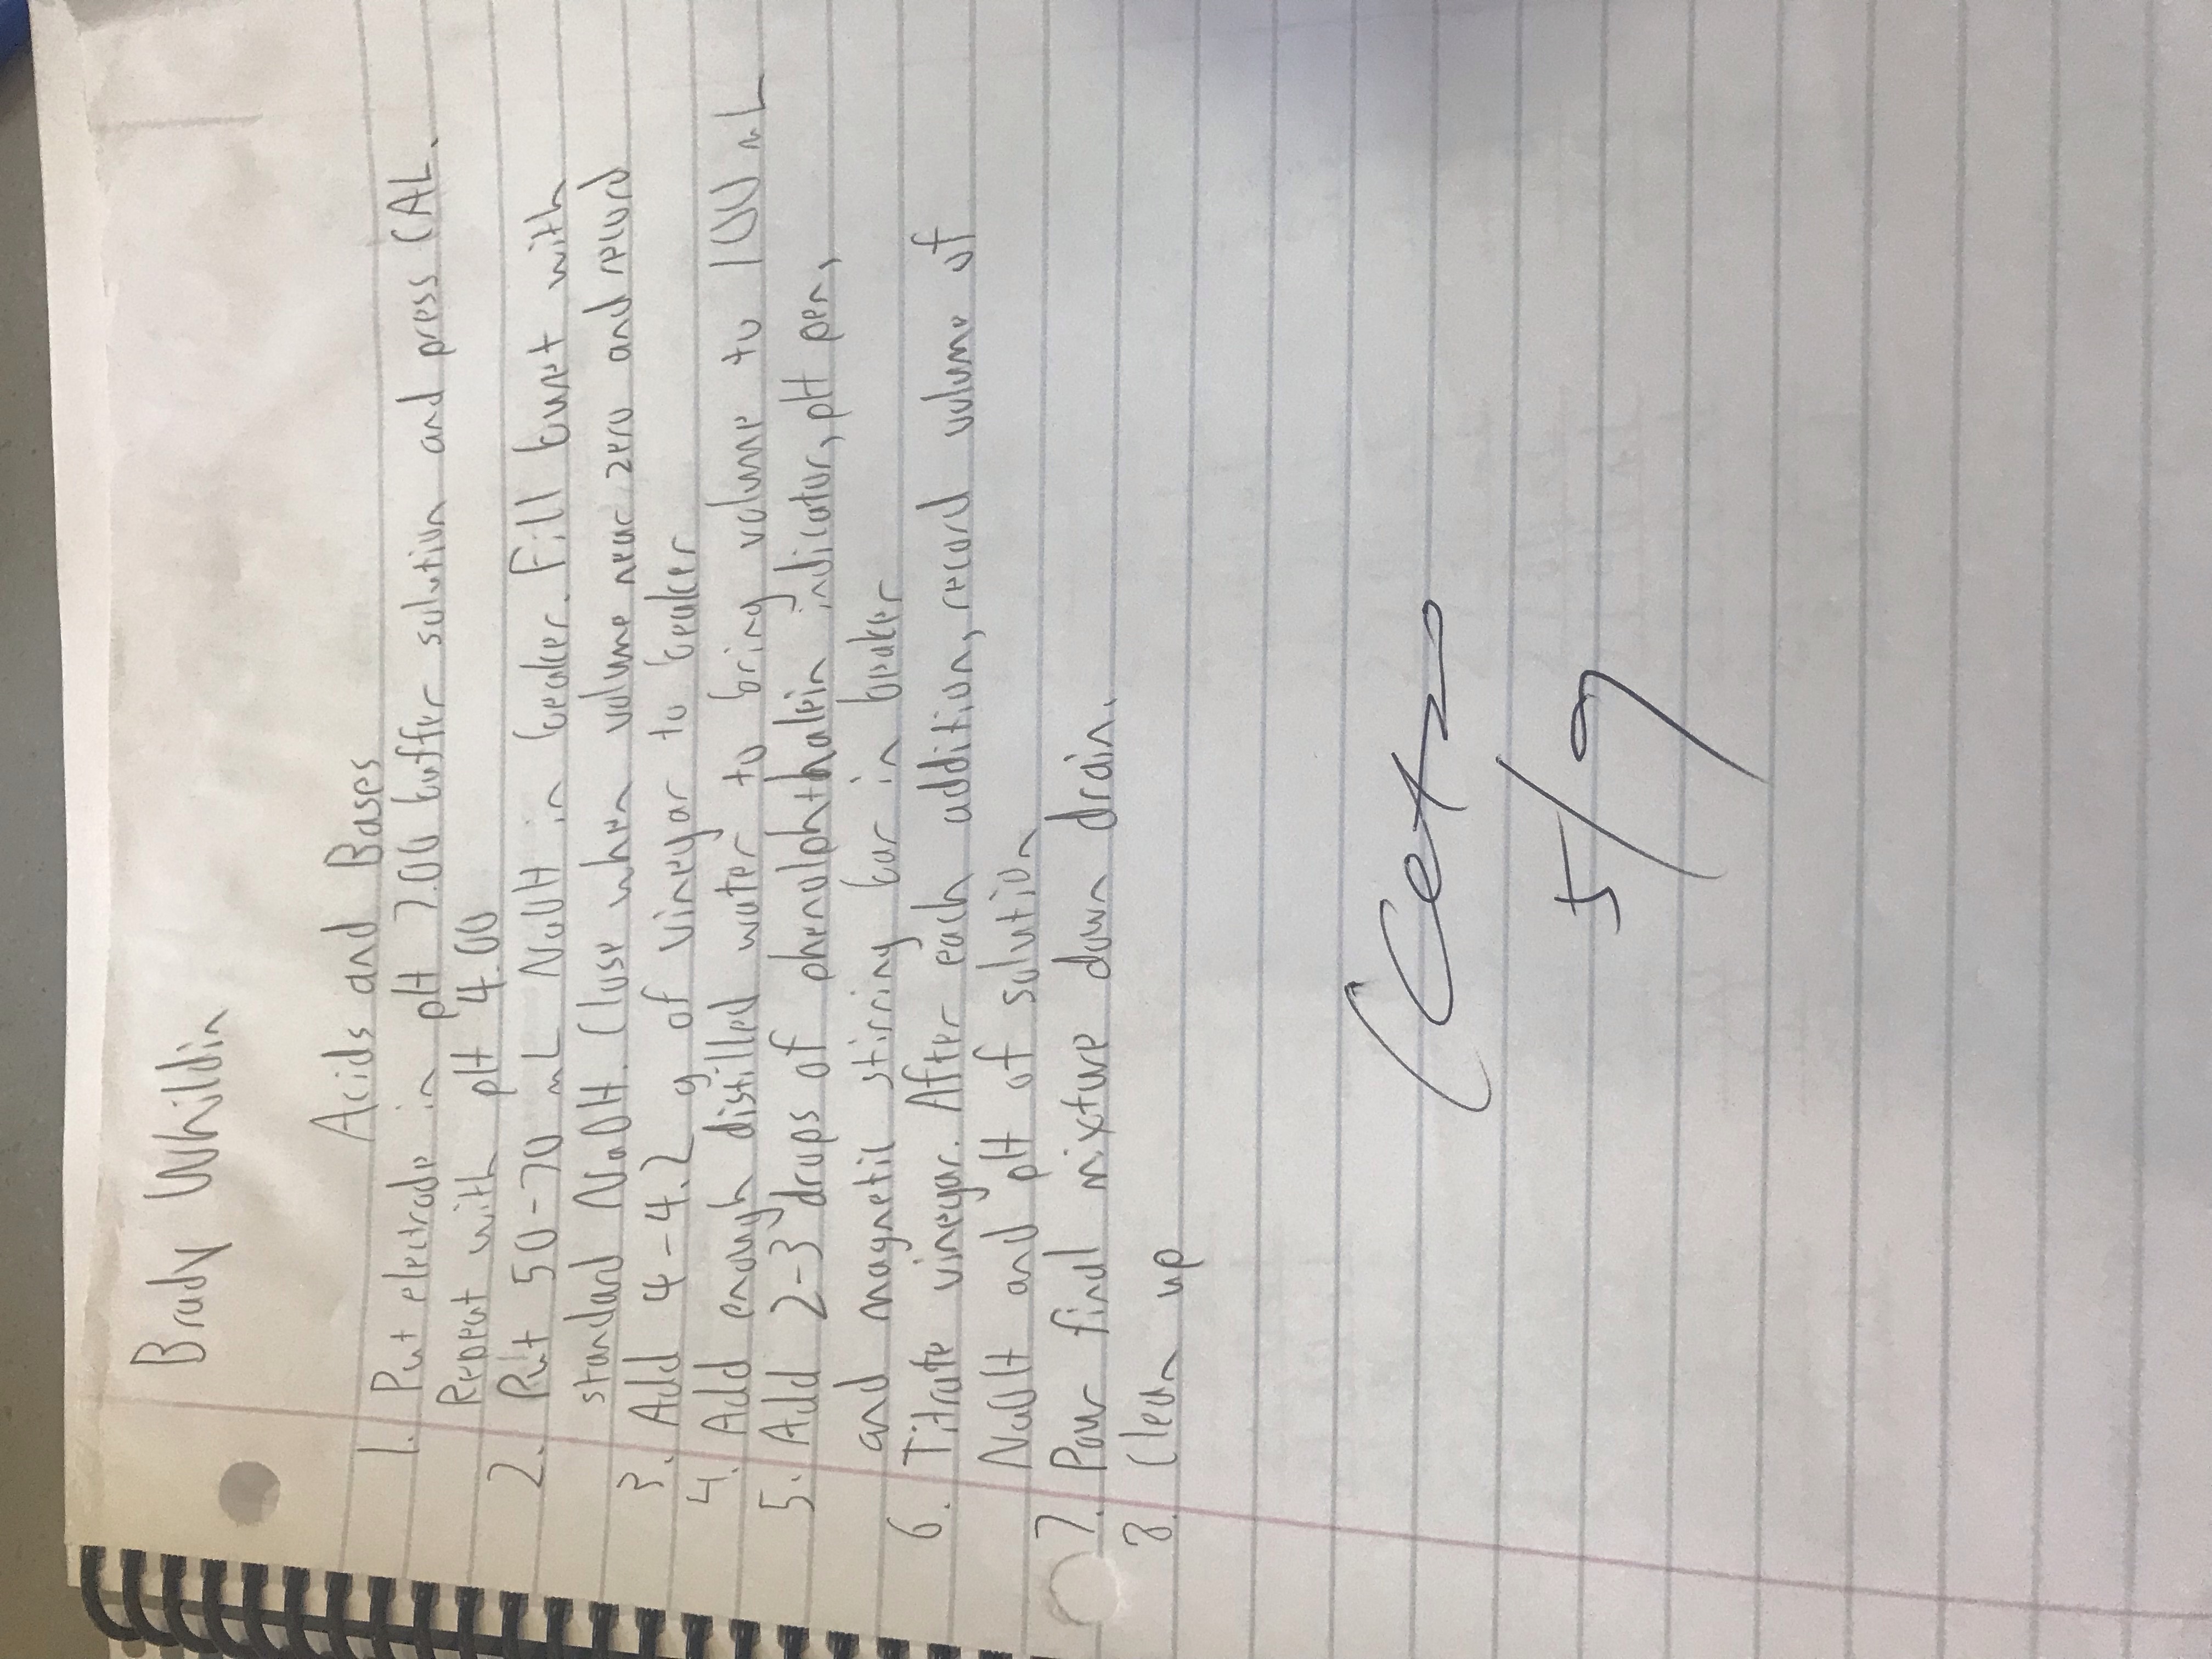 Brady Whildin
Acids and Bases
1. Put electrode in pH 7.00 buffer solution and press CAL.
Repeat with pH 4.00
2. Put 50-70 mL NaOH in beaker. Fill buret with
standard NaOH. Close when volume near zero and record
3. Add 4-4.2 g of vinegar to beaker
4. Add enough distilled water to bring volume to 100 mL
5. Add 2-3 drops of phenolphthalein indicator, pH pen,
and magnetic stirring bar in beaker
6. Titrate vinegar. After each addition, record volume of
NaOH and pH of solution
7. Pour final mixture down drain.
8. Clean up
5/9